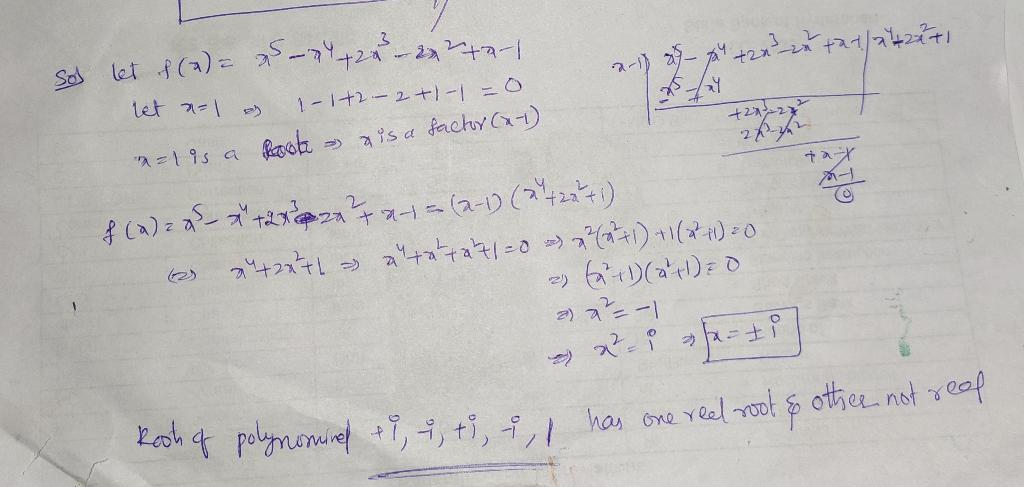 Sol let f(x) = x⁵ - x⁴ + 2x³ - 2x² + x - 1
let x=1 ⇒ 1-1+2-2+1-1 = 0
x=1 is a Root ⇒ x is a factor (x-1)
x-1) x⁵ - x⁴ + 2x³ - 2x² + x - 1 | x⁴+2x²+1
x⁵ - x⁴
+2x³ - 2x²
2x³ - 2x²
+x-1
x-1
0
f(x) = x⁵ - x⁴ + 2x³ - 2x² + x - 1 = (x-1) (x⁴+2x²+1)
⇒ x⁴+2x²+1 ⇒ x⁴+x²+x²+1=0 ⇒ x²(x²+1) +1(x²+1)=0
⇒ (x²+1)(x²+1) = 0
⇒ x² = -1
⇒ x² = i ⇒ x = ±i
Root of polynomial +i, -i, +i, -i, 1 has one reel root & other not real